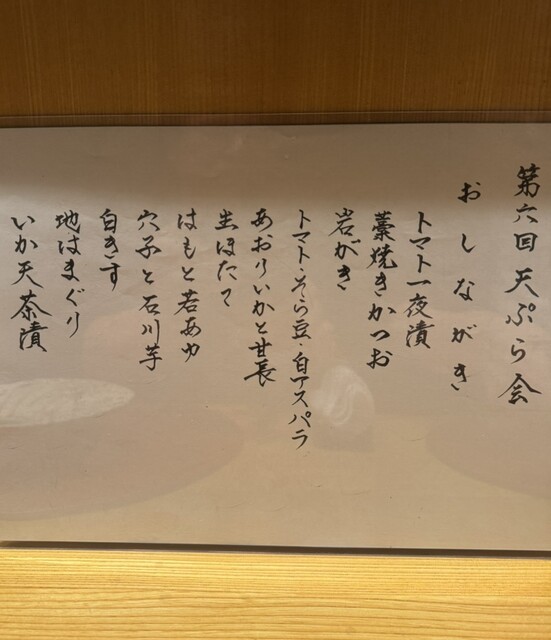 第六回 天ぷら会
おしながき
トマト一夜漬
藁焼きかつお
岩がき
トマト・そら豆・白アスパラ
あおりいかと甘長
生ほたて
はもと若あゆ
穴子と石川芋
白きす
地はまぐり
いか天茶漬